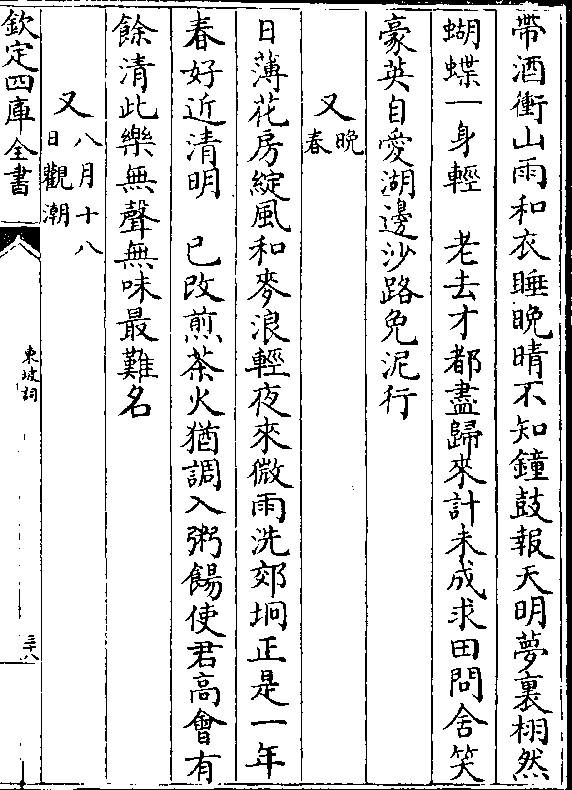 帶酒衝山雨和衣睡晚晴不知鐘鼓報天明夢裏栩然
蝴蝶一身輕　老去才都盡歸來計未成求田問舍笑
豪英自愛湖邊沙路免泥行
又晚春
日薄花房綻風和麥浪輕夜來微雨洗郊坰正是一年
春好近清明　已改煎茶火猶調入粥餳使君高會有
餘清此樂無聲無味最難名
又八月十八日觀潮
欽定四庫全書
東坡詞
三十八